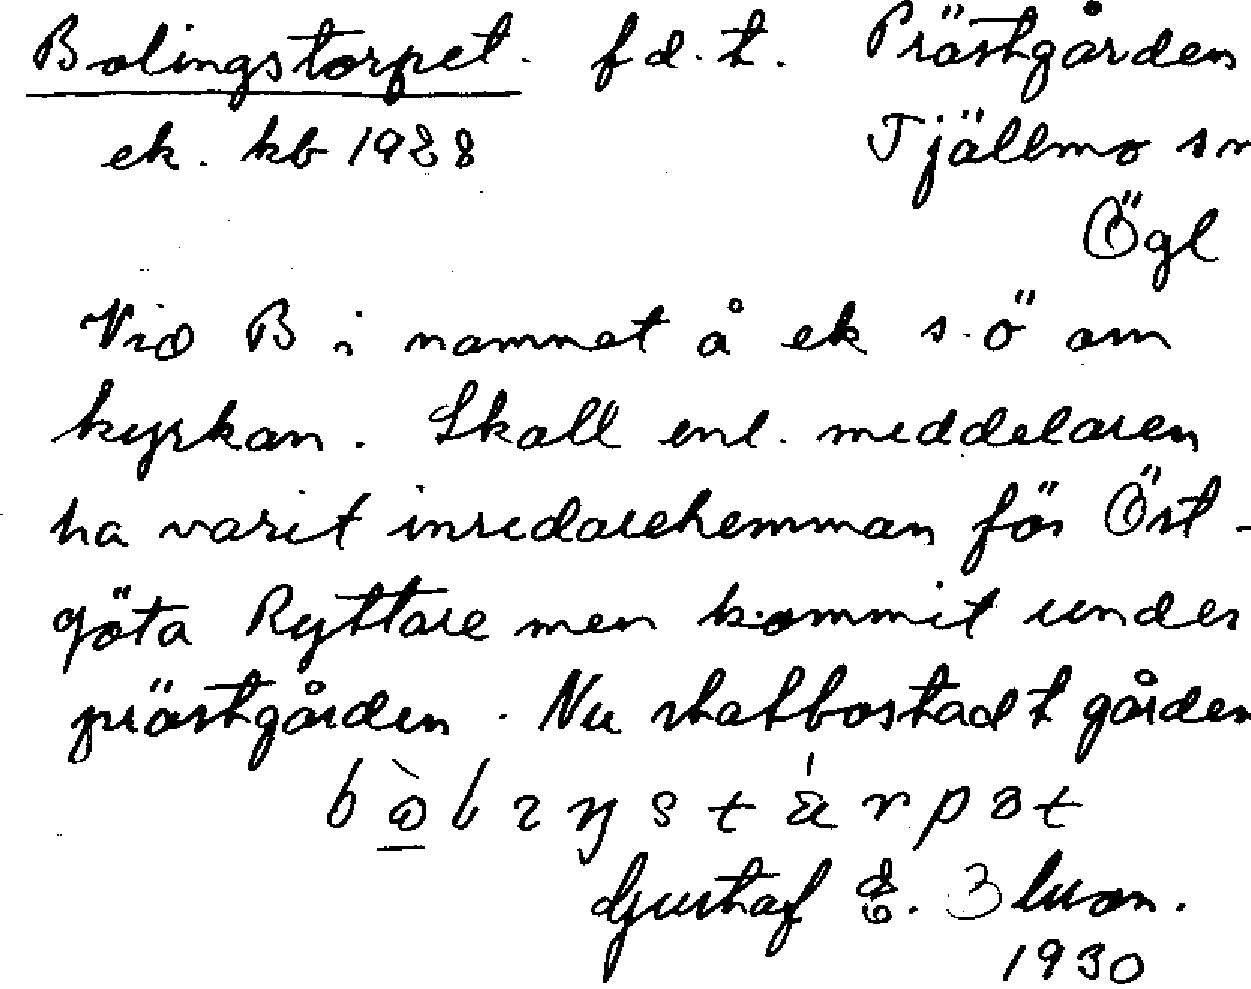 Bolingstorpet. fd. t. Prästgården
ek. kb 1928 Tjällmo sn
Ögl
Vid B i namnet å ek s.ö om
kyrkan. Skall enl. meddelaren
ha varit inredarehemman för Öst-
göta Ryttare men kommit under
prästgården. Nu statbostad t gården
Gustaf E.
1930